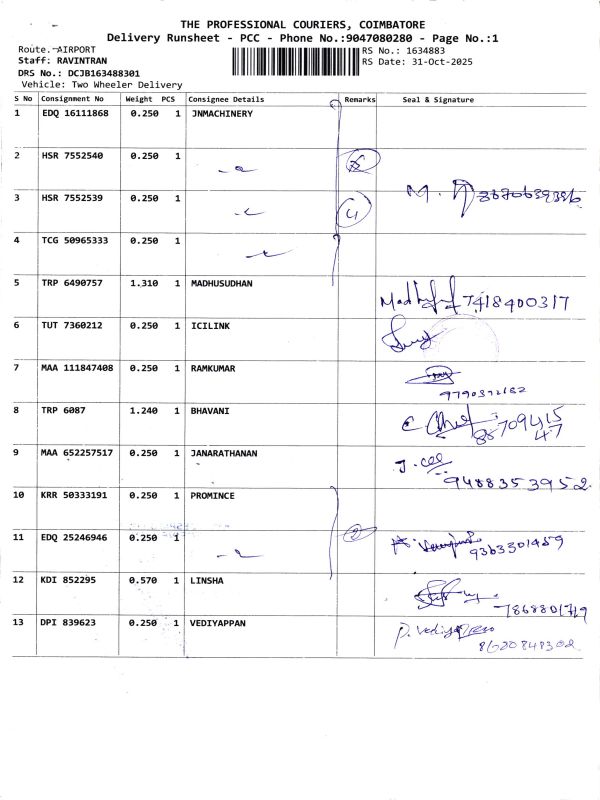 THE PROFESSIONAL COURIERS, COIMBATORE
Delivery Runsheet - PCC - Phone No.:9047080280 - Page No.:1
Route. AIRPORT RS No.: 1634883
Staff: RAVINTRAN RS Date: 31-Oct-2025
DRS No.: DCJB163488301
Vehicle: Two Wheeler Delivery
S No Consignment No Weight PCS Consignee Details Remarks Seal & Signature
1 EDQ 16111868 0.250 1 JNMACHINERY
2 HSR 7552540 0.250 1
3 HSR 7552539 0.250 1 4 M.
4 TCG 50965333 0.250 1
5 TRP 6490757 1.310 1 MADHUSUDHAN 7418400317
6 TUT 7360212 0.250 1 ICILINK
7 MAA 111847408 0.250 1 RAMKUMAR
8 TRP 6087 1.240 1 BHAVANI
9 MAA 652257517 0.250 1 JANARATHANAN J. 9488353952
10 KRR 50333191 0.250 1 PROMINCE
11 EDQ 25246946 0.250 1 2 9363301459
12 KDI 852295 0.570 1 LINSHA 7868801719
13 DPI 839623 0.250 1 VEDIYAPPAN P. Vediyappan